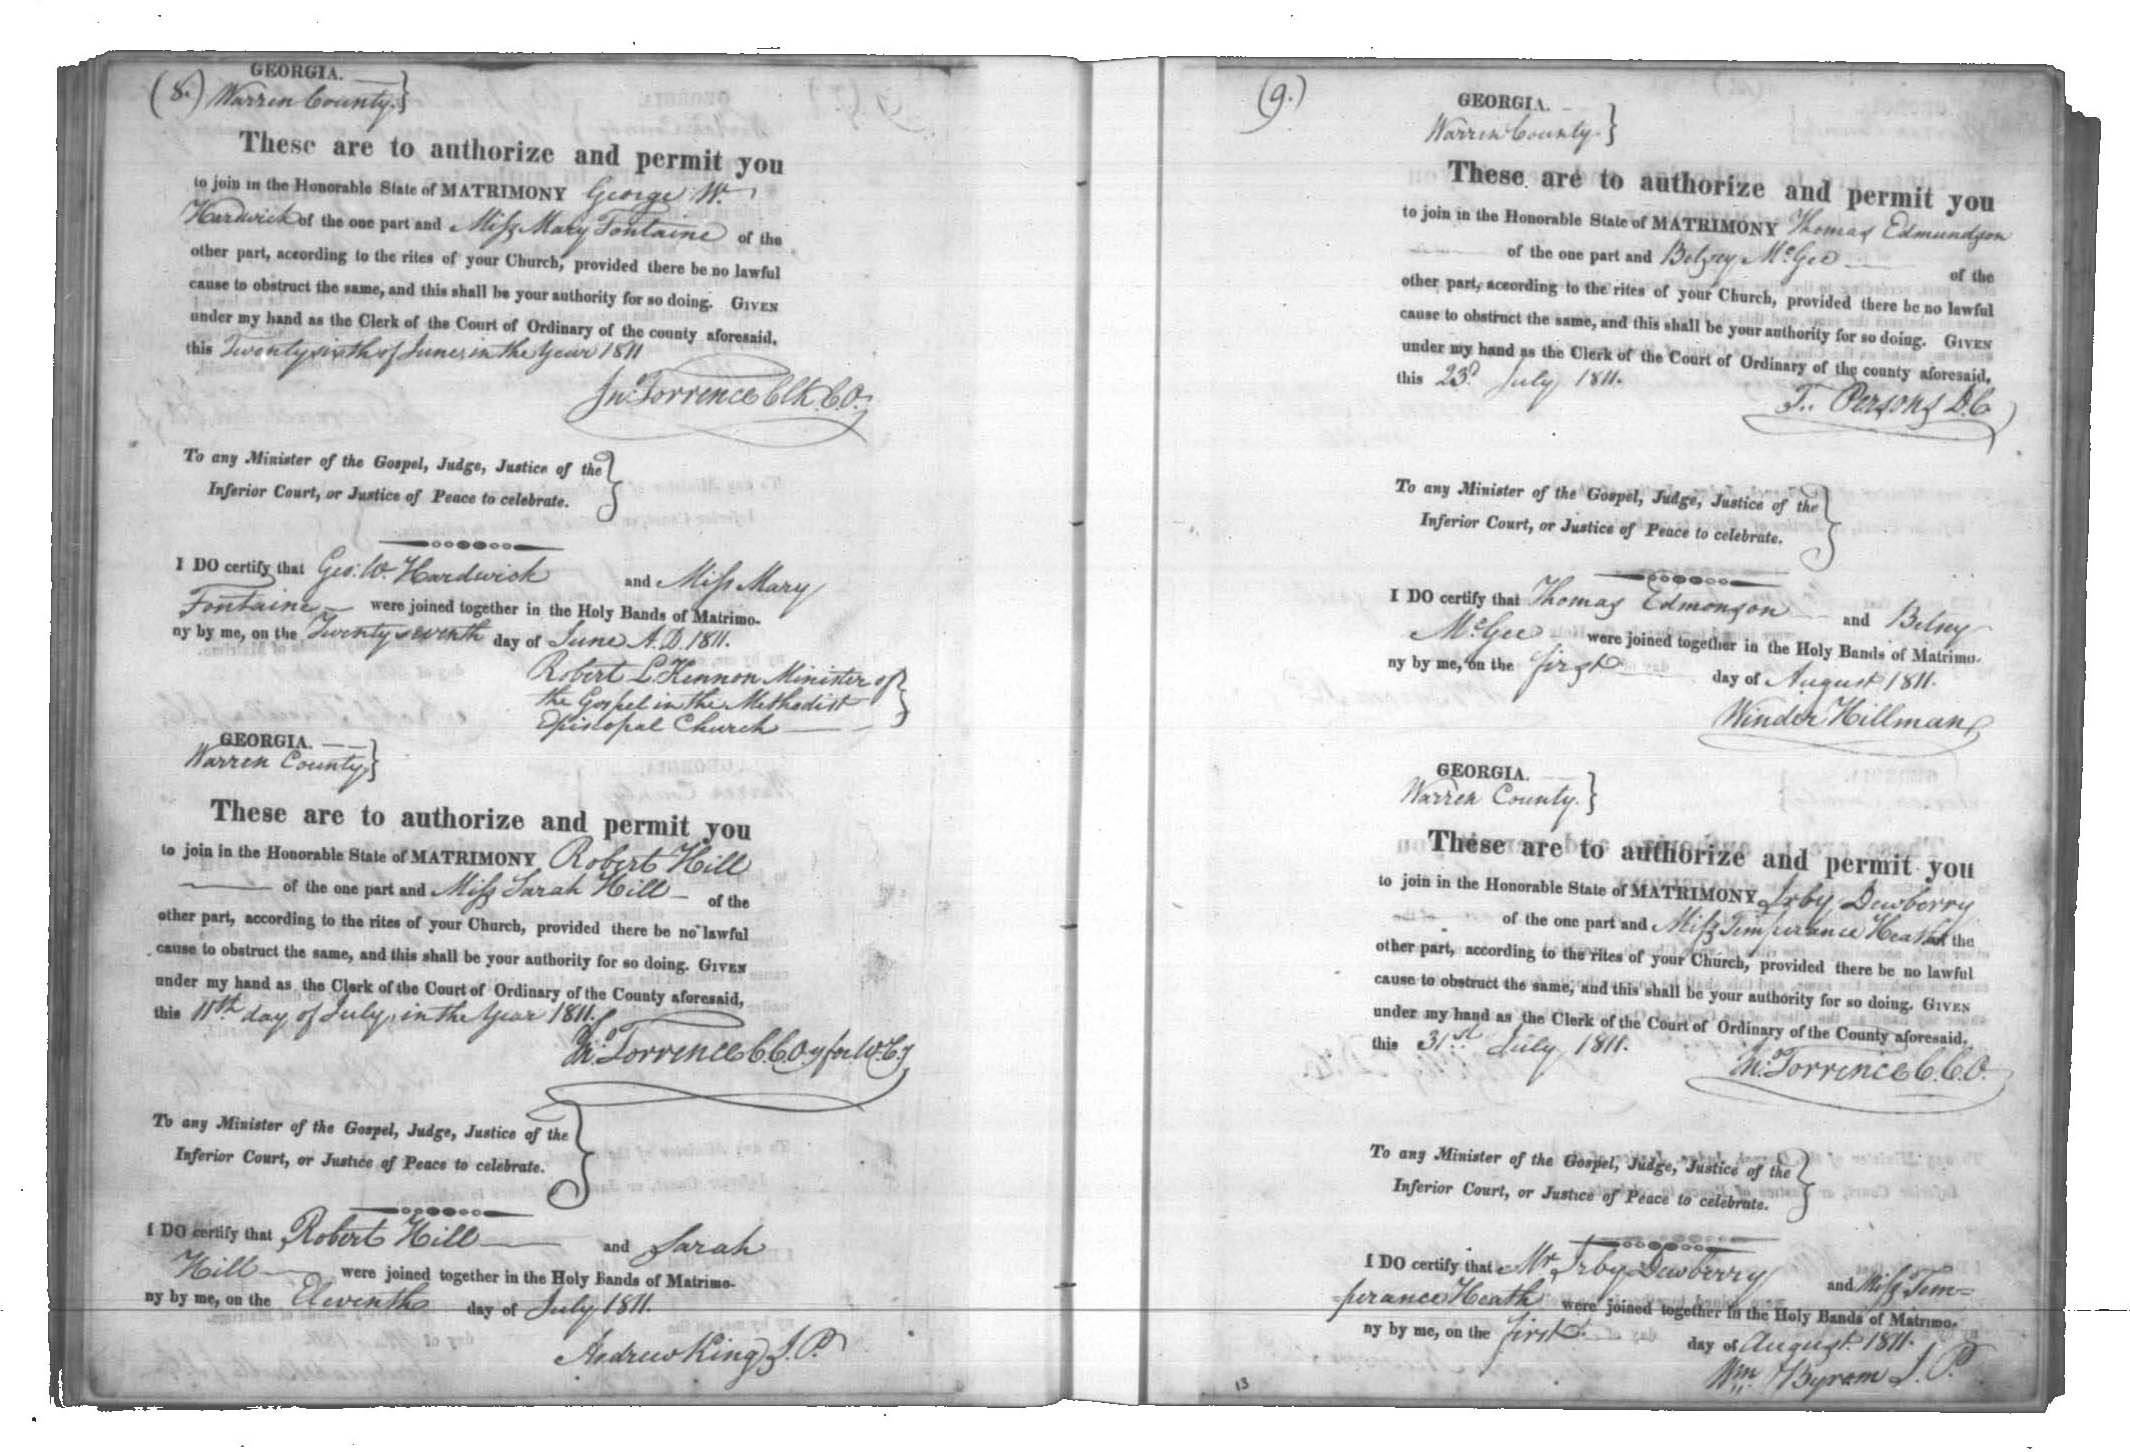 (8.)
GEORGIA.
Warren County.
These are to authorize and permit you
to join in the Honorable State of MATRIMONY George W.
Hardwick of the one part and Miss Mary Fontaine of the
other part, according to the rites of your Church, provided there be no lawful
cause to obstruct the same, and this shall be your authority for so doing. GIVEN
under my hand as the Clerk of the Court of Ordinary of the county aforesaid,
this Twenty sixth of June in the Year 1811
Jno. Torrence Clk. C.O.
To any Minister of the Gospel, Judge, Justice of the
Inferior Court, or Justice of Peace to celebrate.
I DO certify that Geo. W. Hardwick and Miss Mary
Fontaine were joined together in the Holy Bands of Matrimo-
ny by me, on the Twenty seventh day of June A.D. 1811.
Robert L. Kennon Minister of
the Gospel in the Methodist
Episcopal Church
GEORGIA.
Warren County
These are to authorize and permit you
to join in the Honorable State of MATRIMONY Robert Hill
of the one part and Miss Sarah Hill of the
other part, according to the rites of your Church, provided there be no lawful
cause to obstruct the same, and this shall be your authority for so doing. GIVEN
under my hand as the Clerk of the Court of Ordinary of the County aforesaid,
this 11th day of July, in the Year 1811.
Jno. Torrence C.C.O. for W.C.
To any Minister of the Gospel, Judge, Justice of the
Inferior Court, or Justice of Peace to celebrate.
I DO certify that Robert Hill and Sarah
Hill were joined together in the Holy Bands of Matrimo-
ny by me, on the Eleventh day of July 1811.
Andrew King J.P.
(9.)
GEORGIA.
Warren County.
These are to authorize and permit you
to join in the Honorable State of MATRIMONY Thomas Edmundson
of the one part and Betsey McGee of the
other part, according to the rites of your Church, provided there be no lawful
cause to obstruct the same, and this shall be your authority for so doing. GIVEN
under my hand as the Clerk of the Court of Ordinary of the county aforesaid,
this 23d. July 1811.
T. Persons D.C
To any Minister of the Gospel, Judge, Justice of the
Inferior Court, or Justice of Peace to celebrate.
I DO certify that Thomas Edmonson and Betsey
McGee were joined together in the Holy Bands of Matrimo-
ny by me, on the first day of August 1811.
Winder Hillman
GEORGIA.
Warren County.
These are to authorize and permit you
to join in the Honorable State of MATRIMONY Irby Dewberry
of the one part and Miss Temperance Heath of the
other part, according to the rites of your Church, provided there be no lawful
cause to obstruct the same, and this shall be your authority for so doing. GIVEN
under my hand as the Clerk of the Court of Ordinary of the County aforesaid,
this 31st. July 1811.
Jno. Torrence C.C.O.
To any Minister of the Gospel, Judge, Justice of the
Inferior Court, or Justice of Peace to celebrate.
I DO certify that Mr. Irby Dewberry and Miss Tem=
=perance Heath were joined together in the Holy Bands of Matrimo-
ny by me, on the first day of August 1811.
Wm. Byram J.P.
13